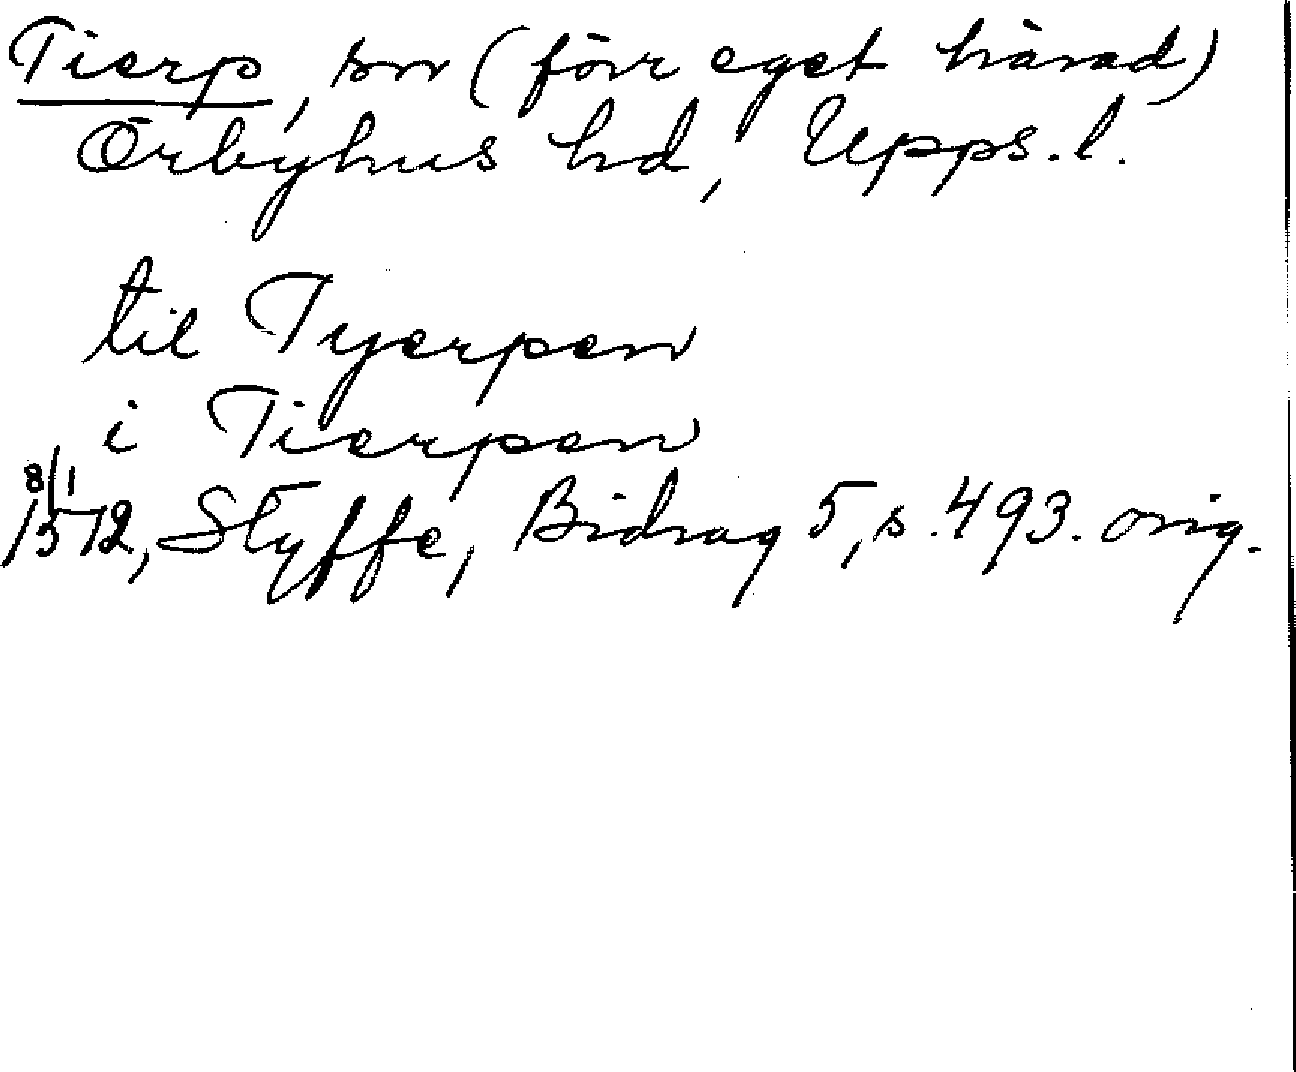 Tierp, sn (förr eget härad)
Örbyhus hd, Upps. l.
til Tyerpen
i Tierpen
8/1
1512, Styffe, Bidrag 5, s. 493. orig.